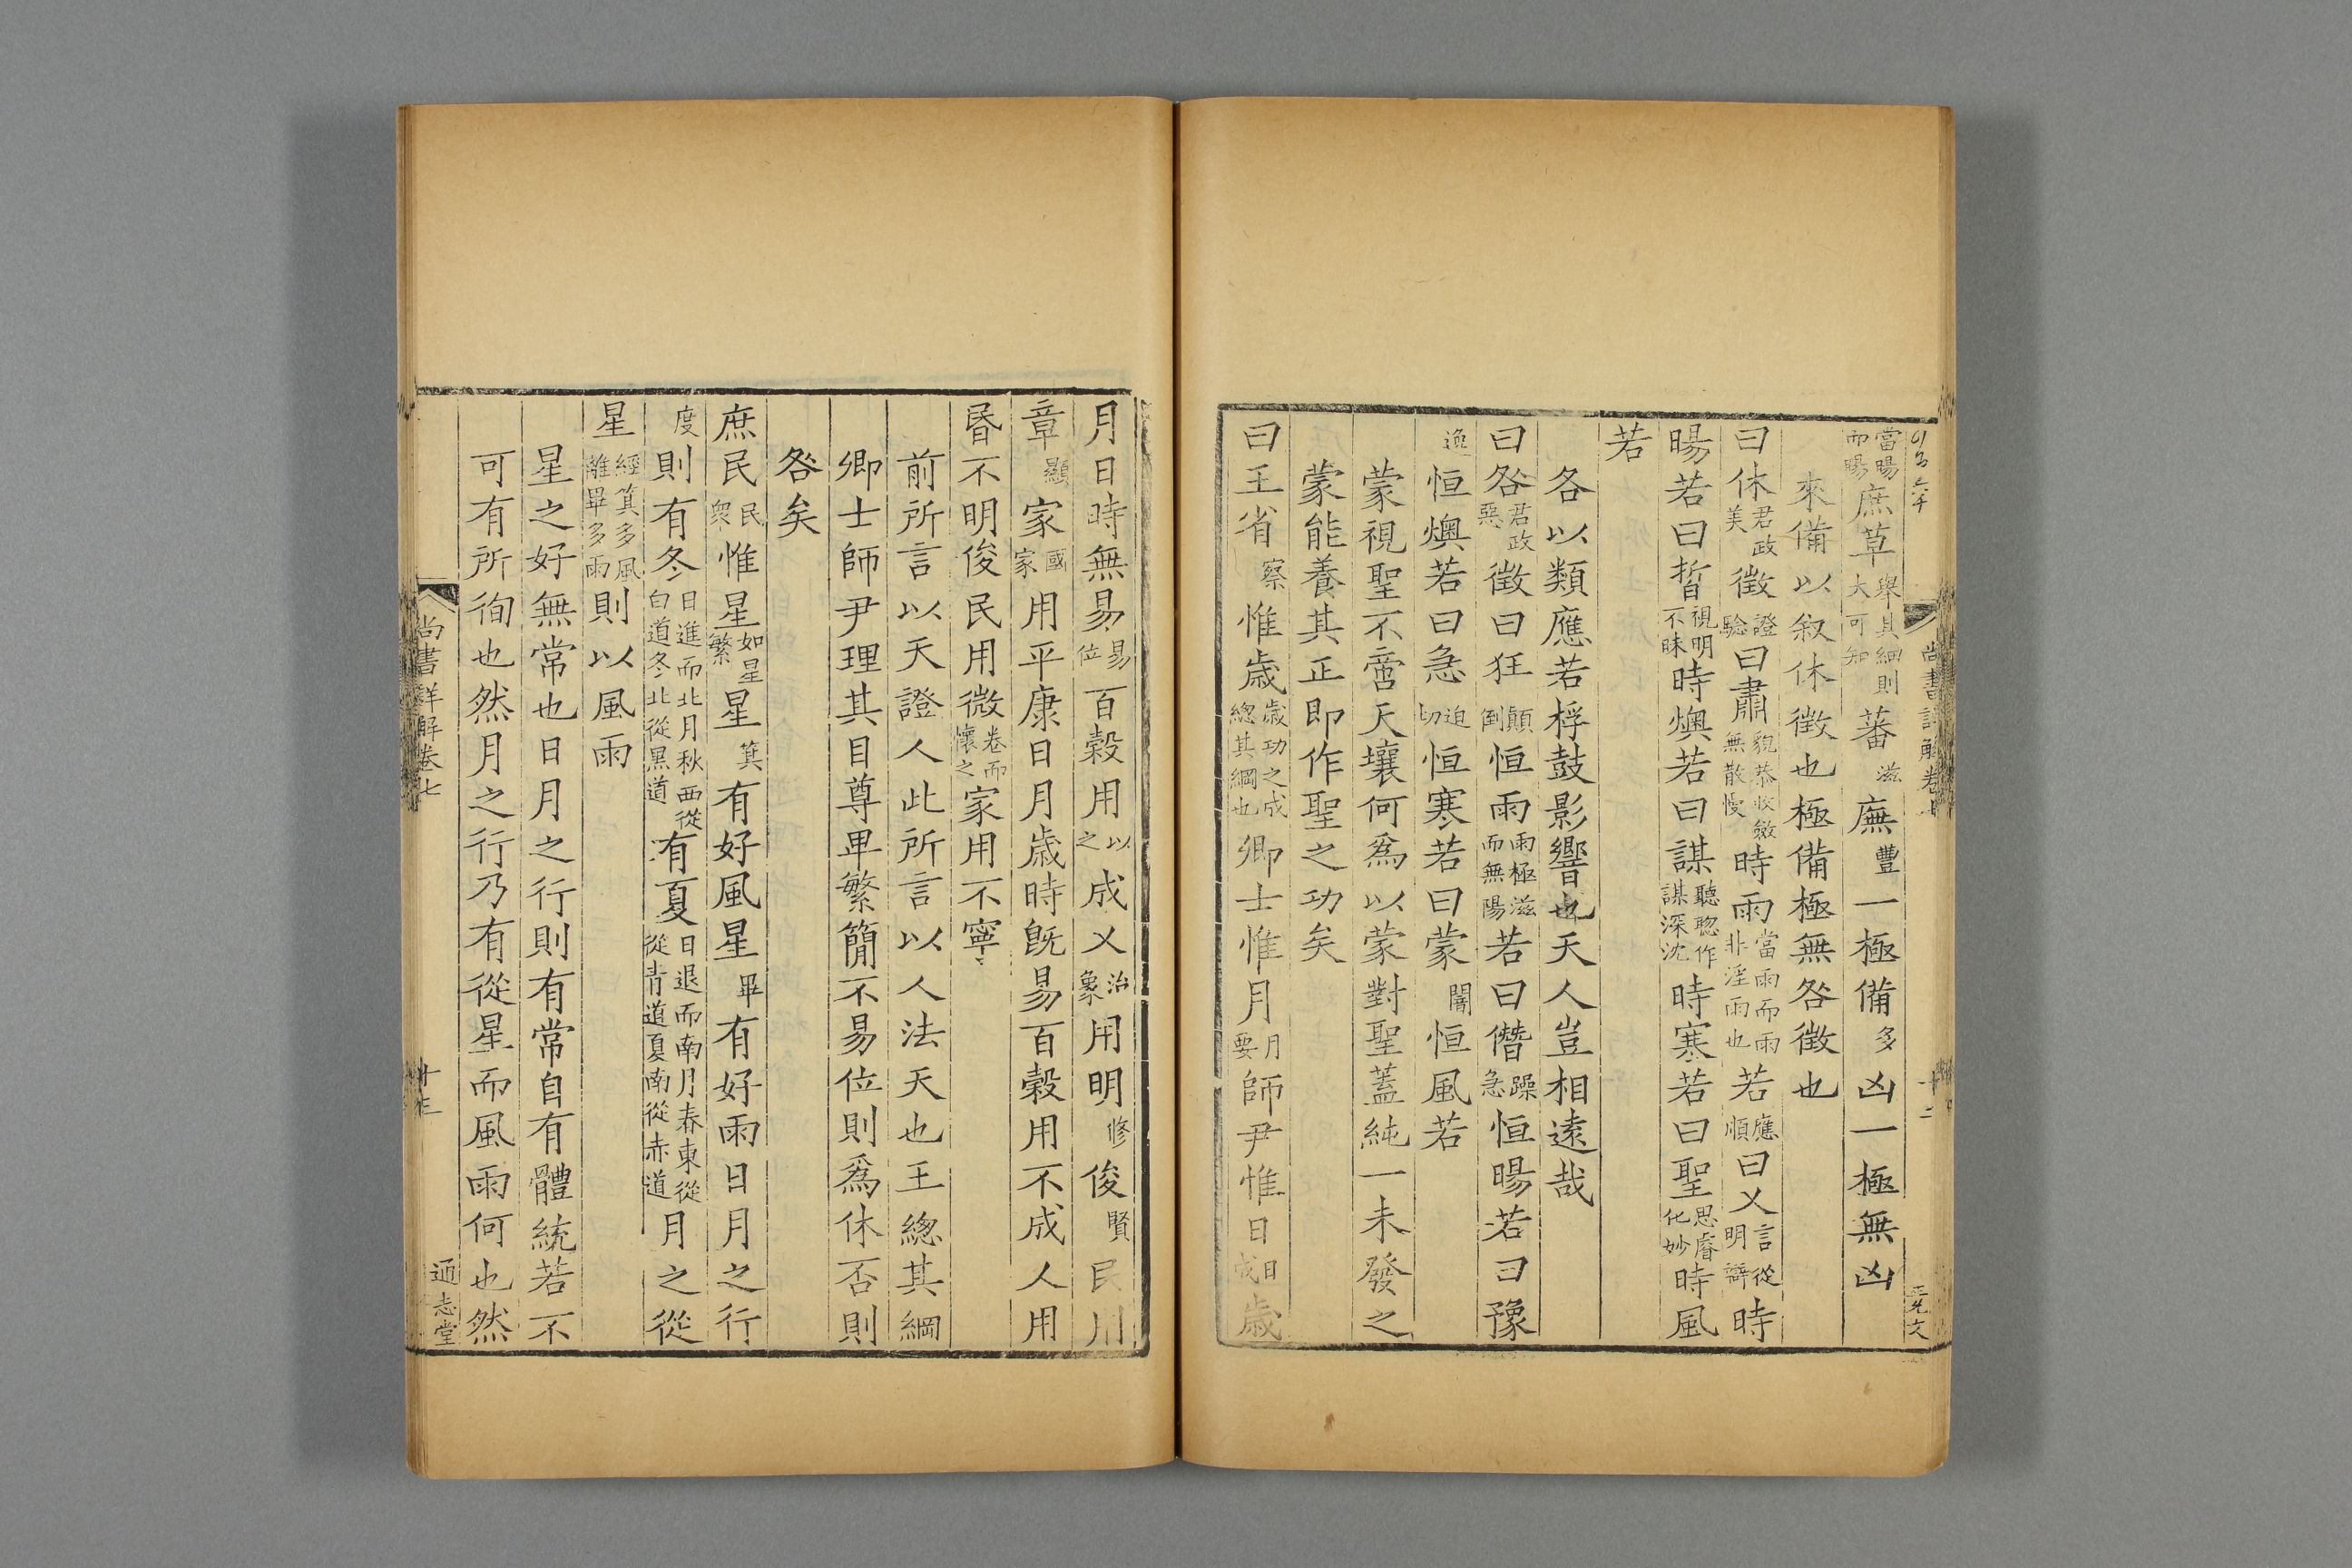 尚書詳解卷七 十二
當暘而暘庶草舉其細則大可知蕃滋廡豐一極備多凶一極無凶
來備以叙休徵也極備極無咎徵也
曰休君政美徵證驗曰肅貌恭收斂無散慢時雨當雨而雨非淫雨也若應順曰乂言從明辯時
暘若曰晢視明不昧時燠若曰謀聽聦作謀深沈時寒若曰聖思睿化妙時風
若
各以類應若桴鼓影響也天人豈相遠哉
曰咎君政惡徵曰狂顛倒恒雨雨極滋而無陽若曰僭躁急恒暘若曰豫
逸恒燠若曰急迫切恒寒若曰蒙闇恒風若
蒙視聖不啻天壤何爲以蒙對聖蓋純一未發之
蒙能養其正即作聖之功矣
曰王省察惟歲歲功之成總其綱也卿士惟月月要師尹惟日日成歲
月日時無易易位百穀用以之成乂治象用明修俊賢民用
章顯家國家用平康日月歲時旣易百穀用不成乂用
昏不明俊民用微卷而懷之家用不寧
前所言以天證人此所言以人法天也王總其綱
卿士師尹理其目尊卑繁簡不易位則爲休否則
咎矣
庶民民衆惟星如星繁星箕有好風星畢有好雨日月之行
度則有冬日進而北月秋西從白道冬北從黑道有夏日退而南月春東從青道夏南從赤道月之從
星經箕多風離畢多雨則以風雨
星之好無常也日月之行則有常自有體統若不
可有所徇也然月之行乃有從星而風雨何也然
尚書詳解卷七 十三 通志堂